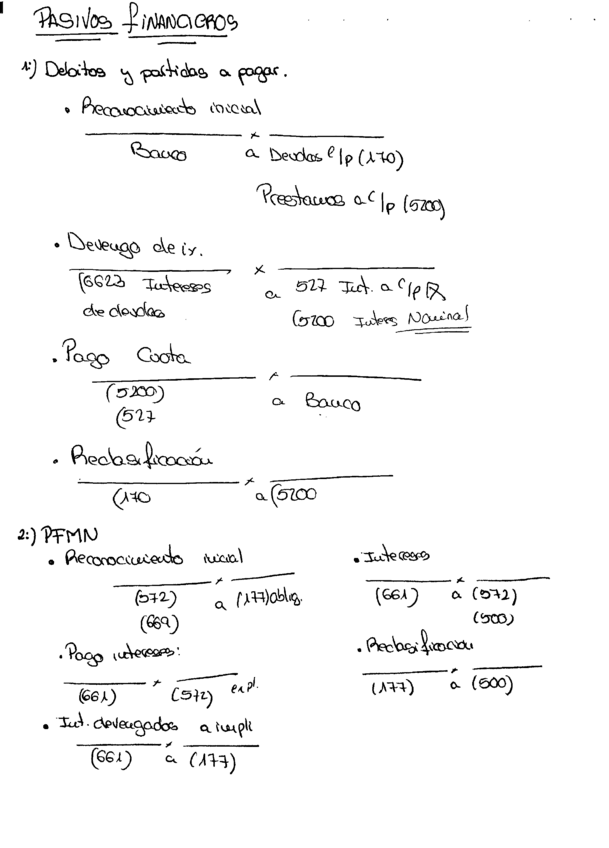 PASIVOS FINANCIEROS
1:) Debitos y partidas a pagar.
• Reconocimiento inicial
x
Banco a Deudas l/p (170)
Prestamos a c/p (5200)
• Devengo de ix.
x
(6623 Intereses a 527 Int. a c/p
de deudas (5200 Interes Nominal
• Pago Cuota
x
(5200) a Banco
(527
• Reclasificación
x
(170 a (5200
2:) PFMN
• Reconocimiento inicial
x
(572) a (177) oblig.
(669)
• Pago intereses:
x
(661) (572) expl.
• Int. devengados a impli
x
(661) a (177)
• Intereses
x
(661) a (572)
(500)
• Reclasificacion
x
(177) a (500)